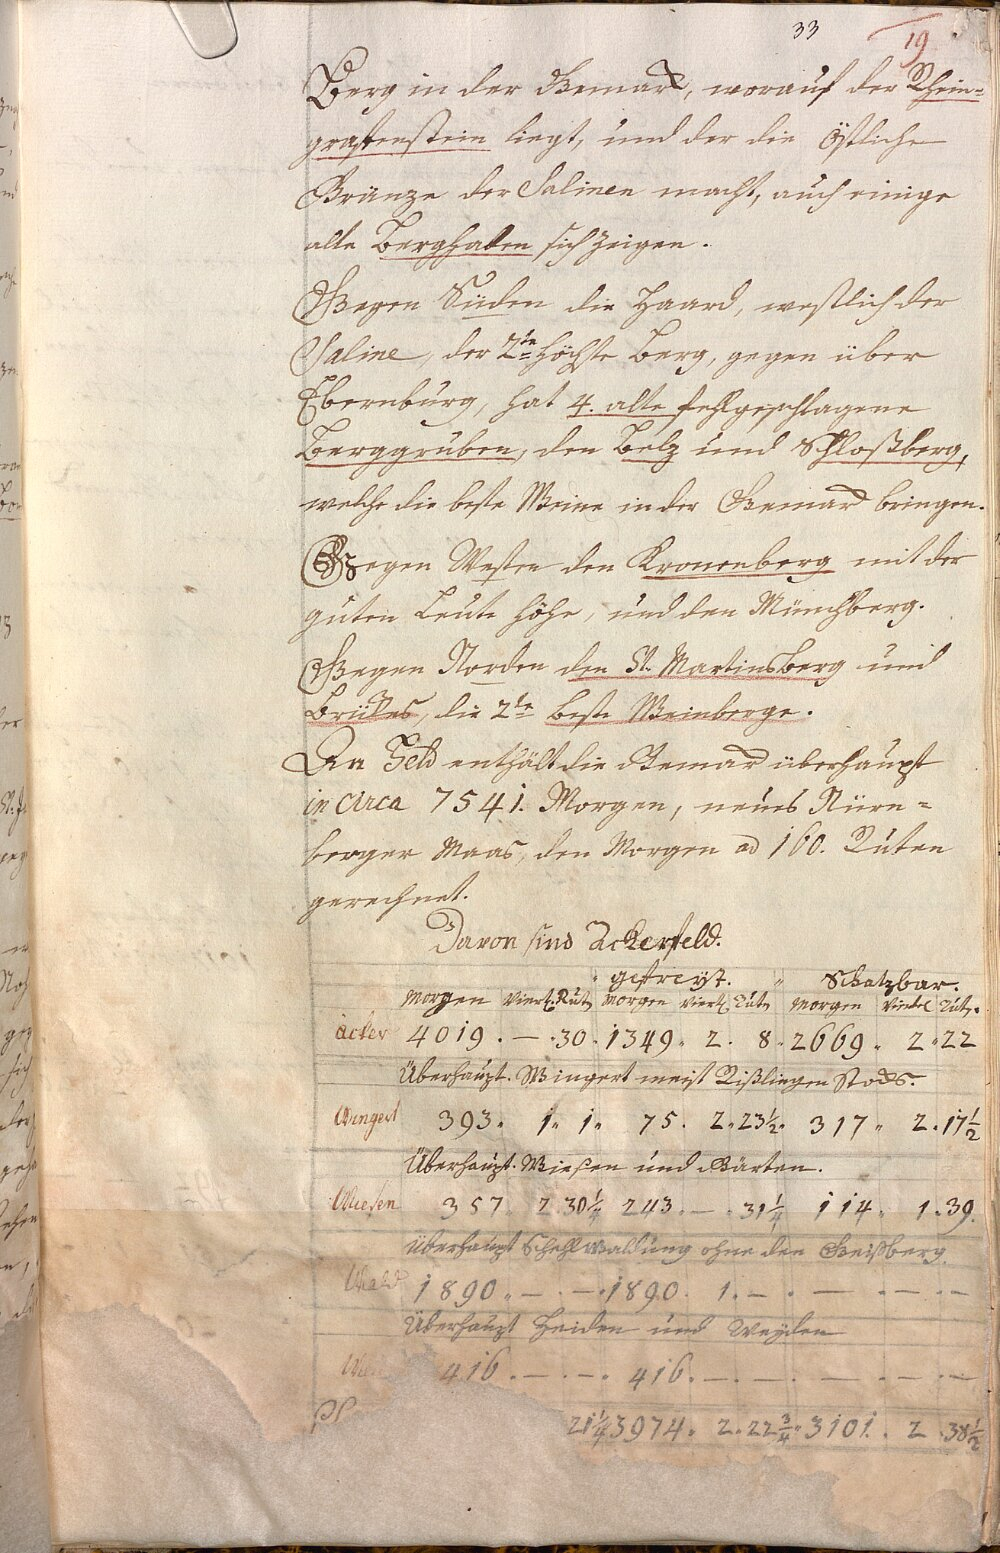 33
19
Berg in der Gemark, worauf der Rhein=
grafenstein liegt, und der die östliche
Gränze der Salinen macht, auch einige
alte Berghalen sich zeigen.
Gegen Süden die Haard, westlich der
Saline, der 2te höchste Berg, gegen über
Ebernburg, hat 4. alte fehlgeschlagene
Berggruben, den Belz und Schloßberg,
welche die beste Weine in der Gemark bringen.
Gegen Westen den Kronenberg mit der
guten Leute Höhe, und den Münchberg.
Gegen Norden den St. Martinsberg und
Brükes, die 2te beste Weinberge.
An Feld enthält die Gemark überhaupt
in circa 7541. Morgen, neues Nürn=
berger Maas, den Morgen ad 160. Ruten
gerechnet.
Davon sind Ackerfeld.
gefreyt. Schatzbar.
Morgen Viert. Rut. Morgen Viert. Rut. Morgen Viertel Rut.
äcker 4019. — . 30. 1349. 2. 8. 2669. 2. 22
Überhaupt. Wingert meist Rißlingen Stocks.
Wingert 393. 1. 1. 75. 2. 23½. 317. 2. 17½
Überhaupt. Wiesen und Gärten.
Wiesen 357. 2. 30¼ 243. — . 31¼ 114. 1. 39.
Überhaupt Waldung ohne den Geißberg.
Wald 1890. — . — . 1890. 1. — . — . — . —
Überhaupt Heiden und Weyden
416. — . — . 416. — . — . — . — . —
21¼ 3974. 2. 22¾. 3101. 2. 38½